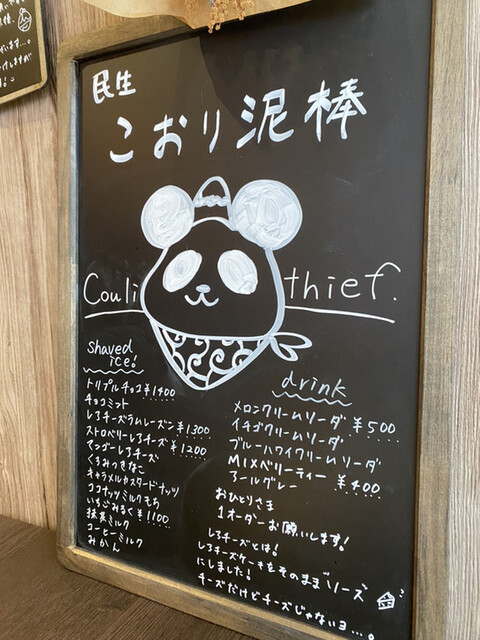 民生
こおり泥棒
Couli thief.
shaved
ice!
トリプルチョコ ¥1400
チョコミント
レアチーズラムレーズン ¥1300
ストロベリーレアチーズ ¥1200
マンゴーレアチーズ
くるみつきなこ
キャラメルカスタードナッツ
ココナッツミルクもち
いちごみるく ¥1100
抹茶ミルク
コーヒーミルク
みかん
drink
メロンクリームソーダ ¥500
イチゴクリームソーダ
ブルーハワイクリームソーダ
MIXベリーティー ¥400
アールグレー
おひとりさま
1オーダーお願いします!
レアチーズとは!
レアチーズケーキをそのままソース
にしました!
チーズだけどチーズじゃないヨ…。